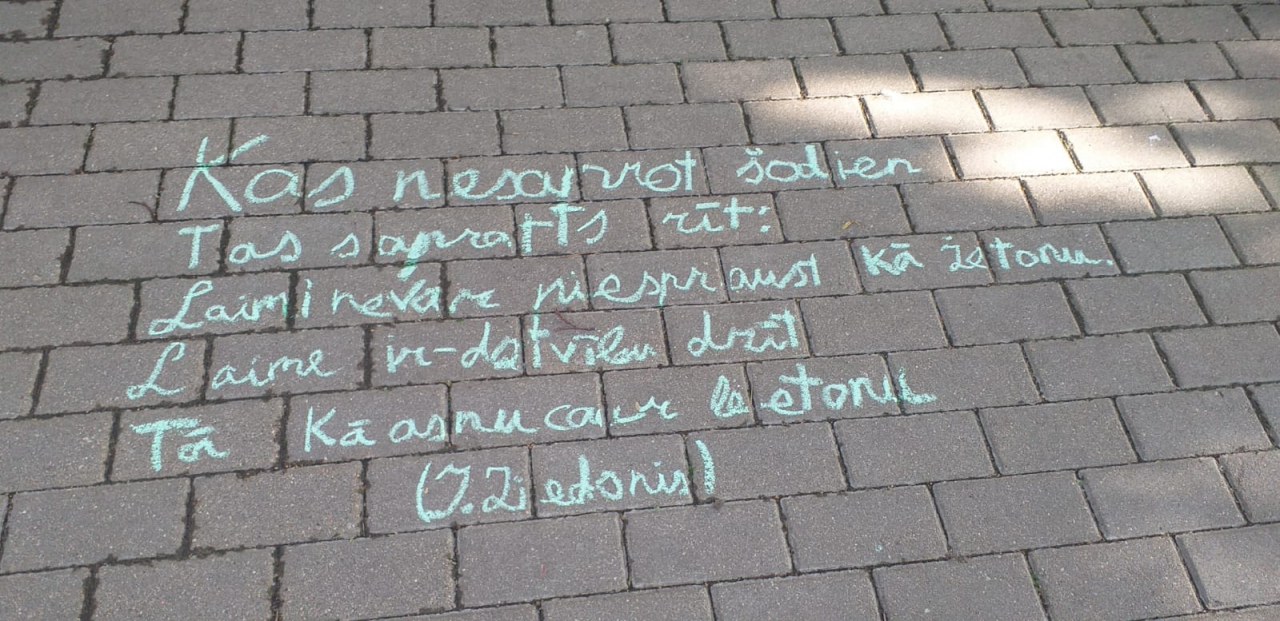 Kas nesaprot šodien
Tas sapratīs rīt:
Laimi nevar piespraust kā žetonu.
Laime ir dzīt
Tā kā asnu caur betonu
(I. Ziedonis)